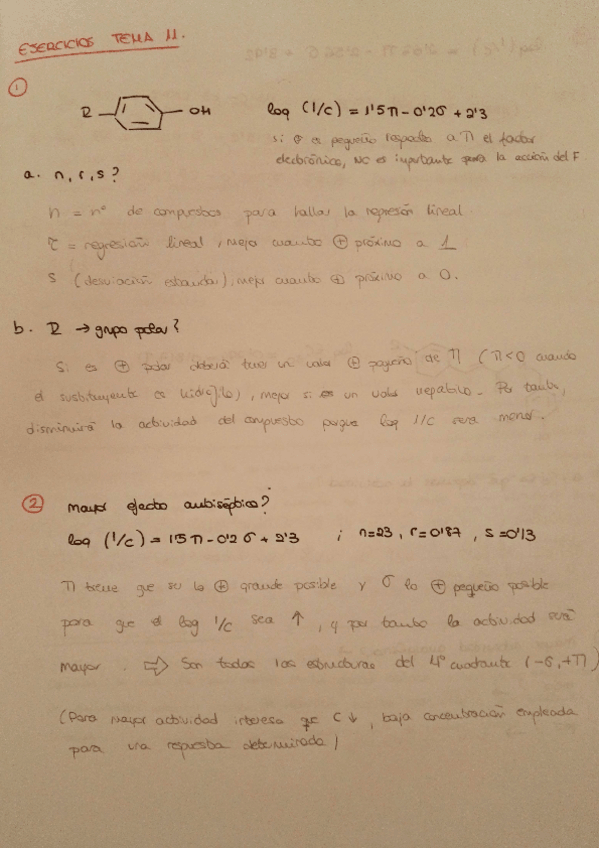 EJERCICIOS TEMA 11.
①
R — OH log (1/c) = 1'5 π - 0'2 σ + 2'3
si σ es pequeño respecto a π el factor
electrónico, NO es importante para la acción del F
a. n, r, s?
n = nº de compuestos para hallar la regresión lineal
r = regresión lineal, mejor cuanto ⊕ próximo a 1
s (desviación estandar), mejor cuanto ⊕ próximo a 0.
b. R → grupo polar?
Si es ⊕ polar deberá tener un valor ⊕ pequeño de π (π<0 cuando
el sustituyente es hidrófilo), mejor si es un valor negativo. Por tanto,
disminuirá la actividad del compuesto porque log 1/c será menor.
② Mayor efecto antiséptico?
log (1/c) = 1'5 π - 0'2 σ + 2'3 ; n=23, r=0'87, s=0'13
π tiene que ser lo ⊕ grande posible y σ lo ⊕ pequeño posible
para que el log 1/c sea ↑, y por tanto la actividad será
mayor. ⇒ Son todas las estructuras del 4º cuadrante (-σ, +π)
(Para mayor actividad interesa que C ↓, baja concentración empleada
para una respuesta determinada)